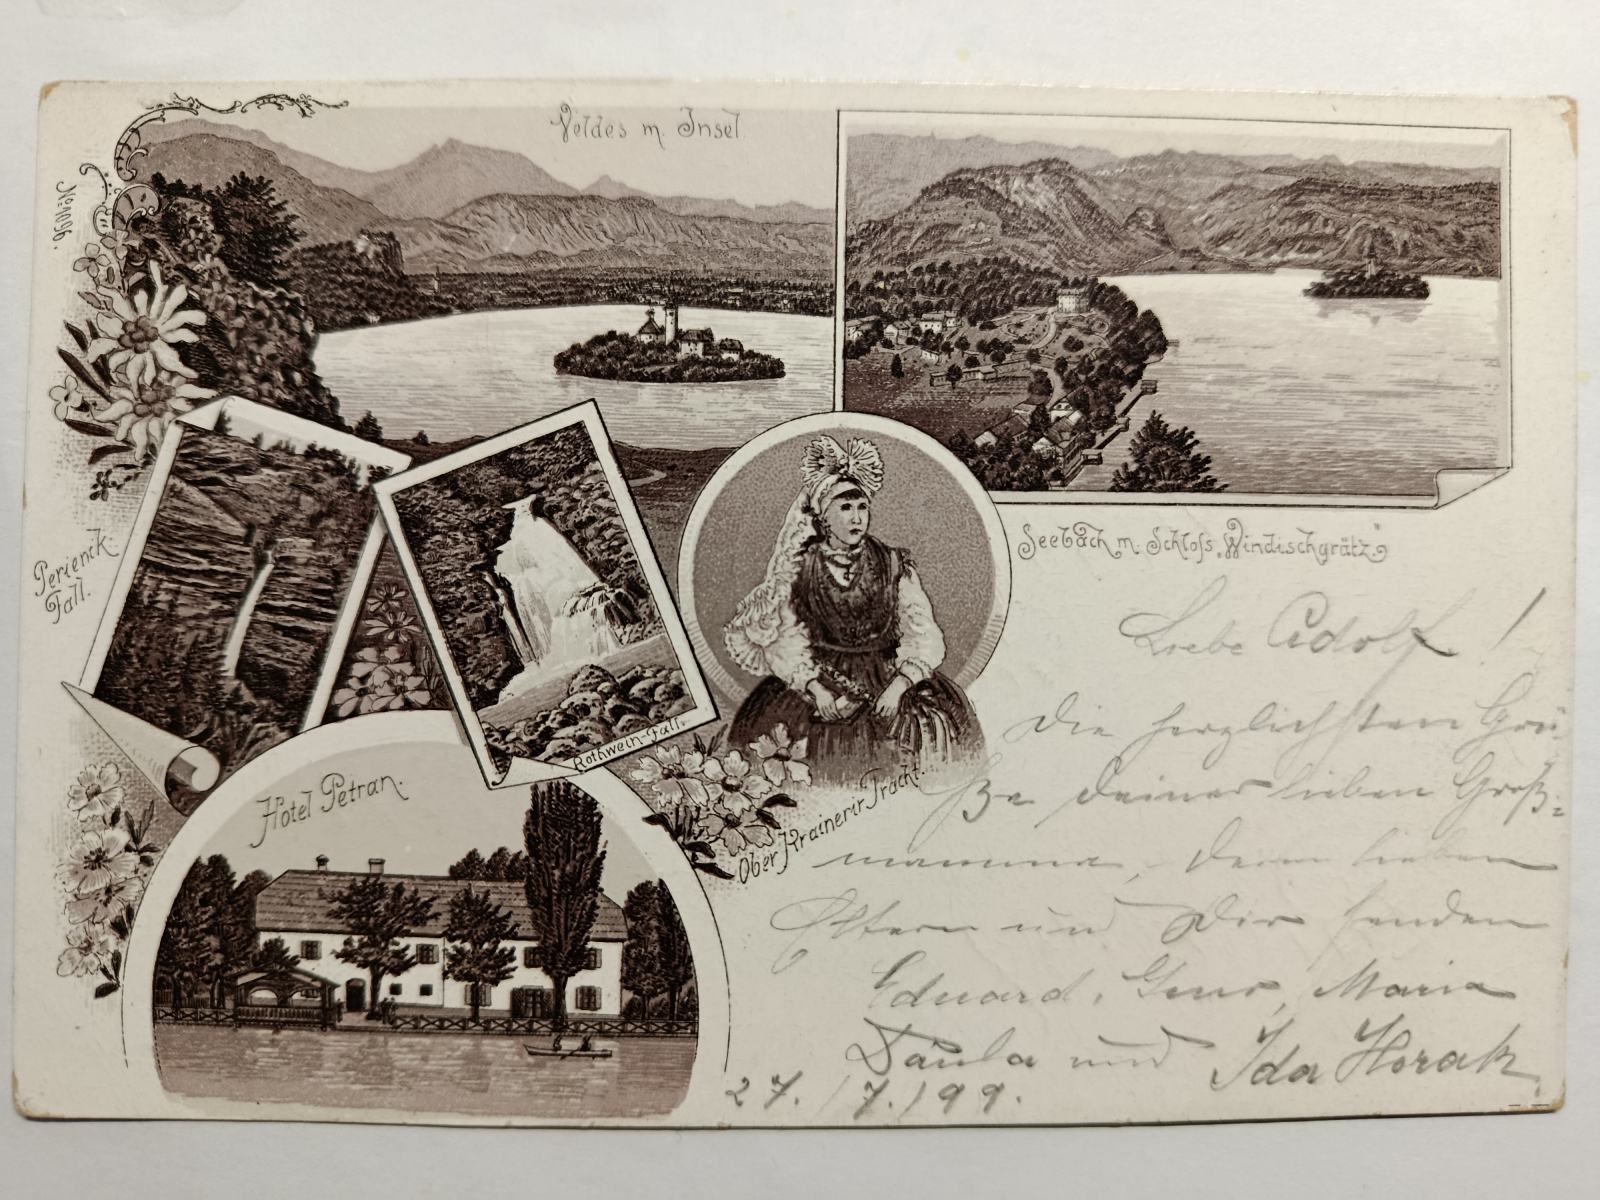 Veldes m. Insel.
No 1096.
Seebach m. Schloſs „Windischgrätz“
Perienik-
Fall.
Rothwein-Fall.
Hotel Petran.
Ober Krainerin Tracht.
Liebe Adolf!
Die herzlichsten Grü-
ße deiner lieben Groß-
mamma, deine lieben
Eltern und Dir senden
Eduard, Maria
Paula und Ida Horak
27./7./99.